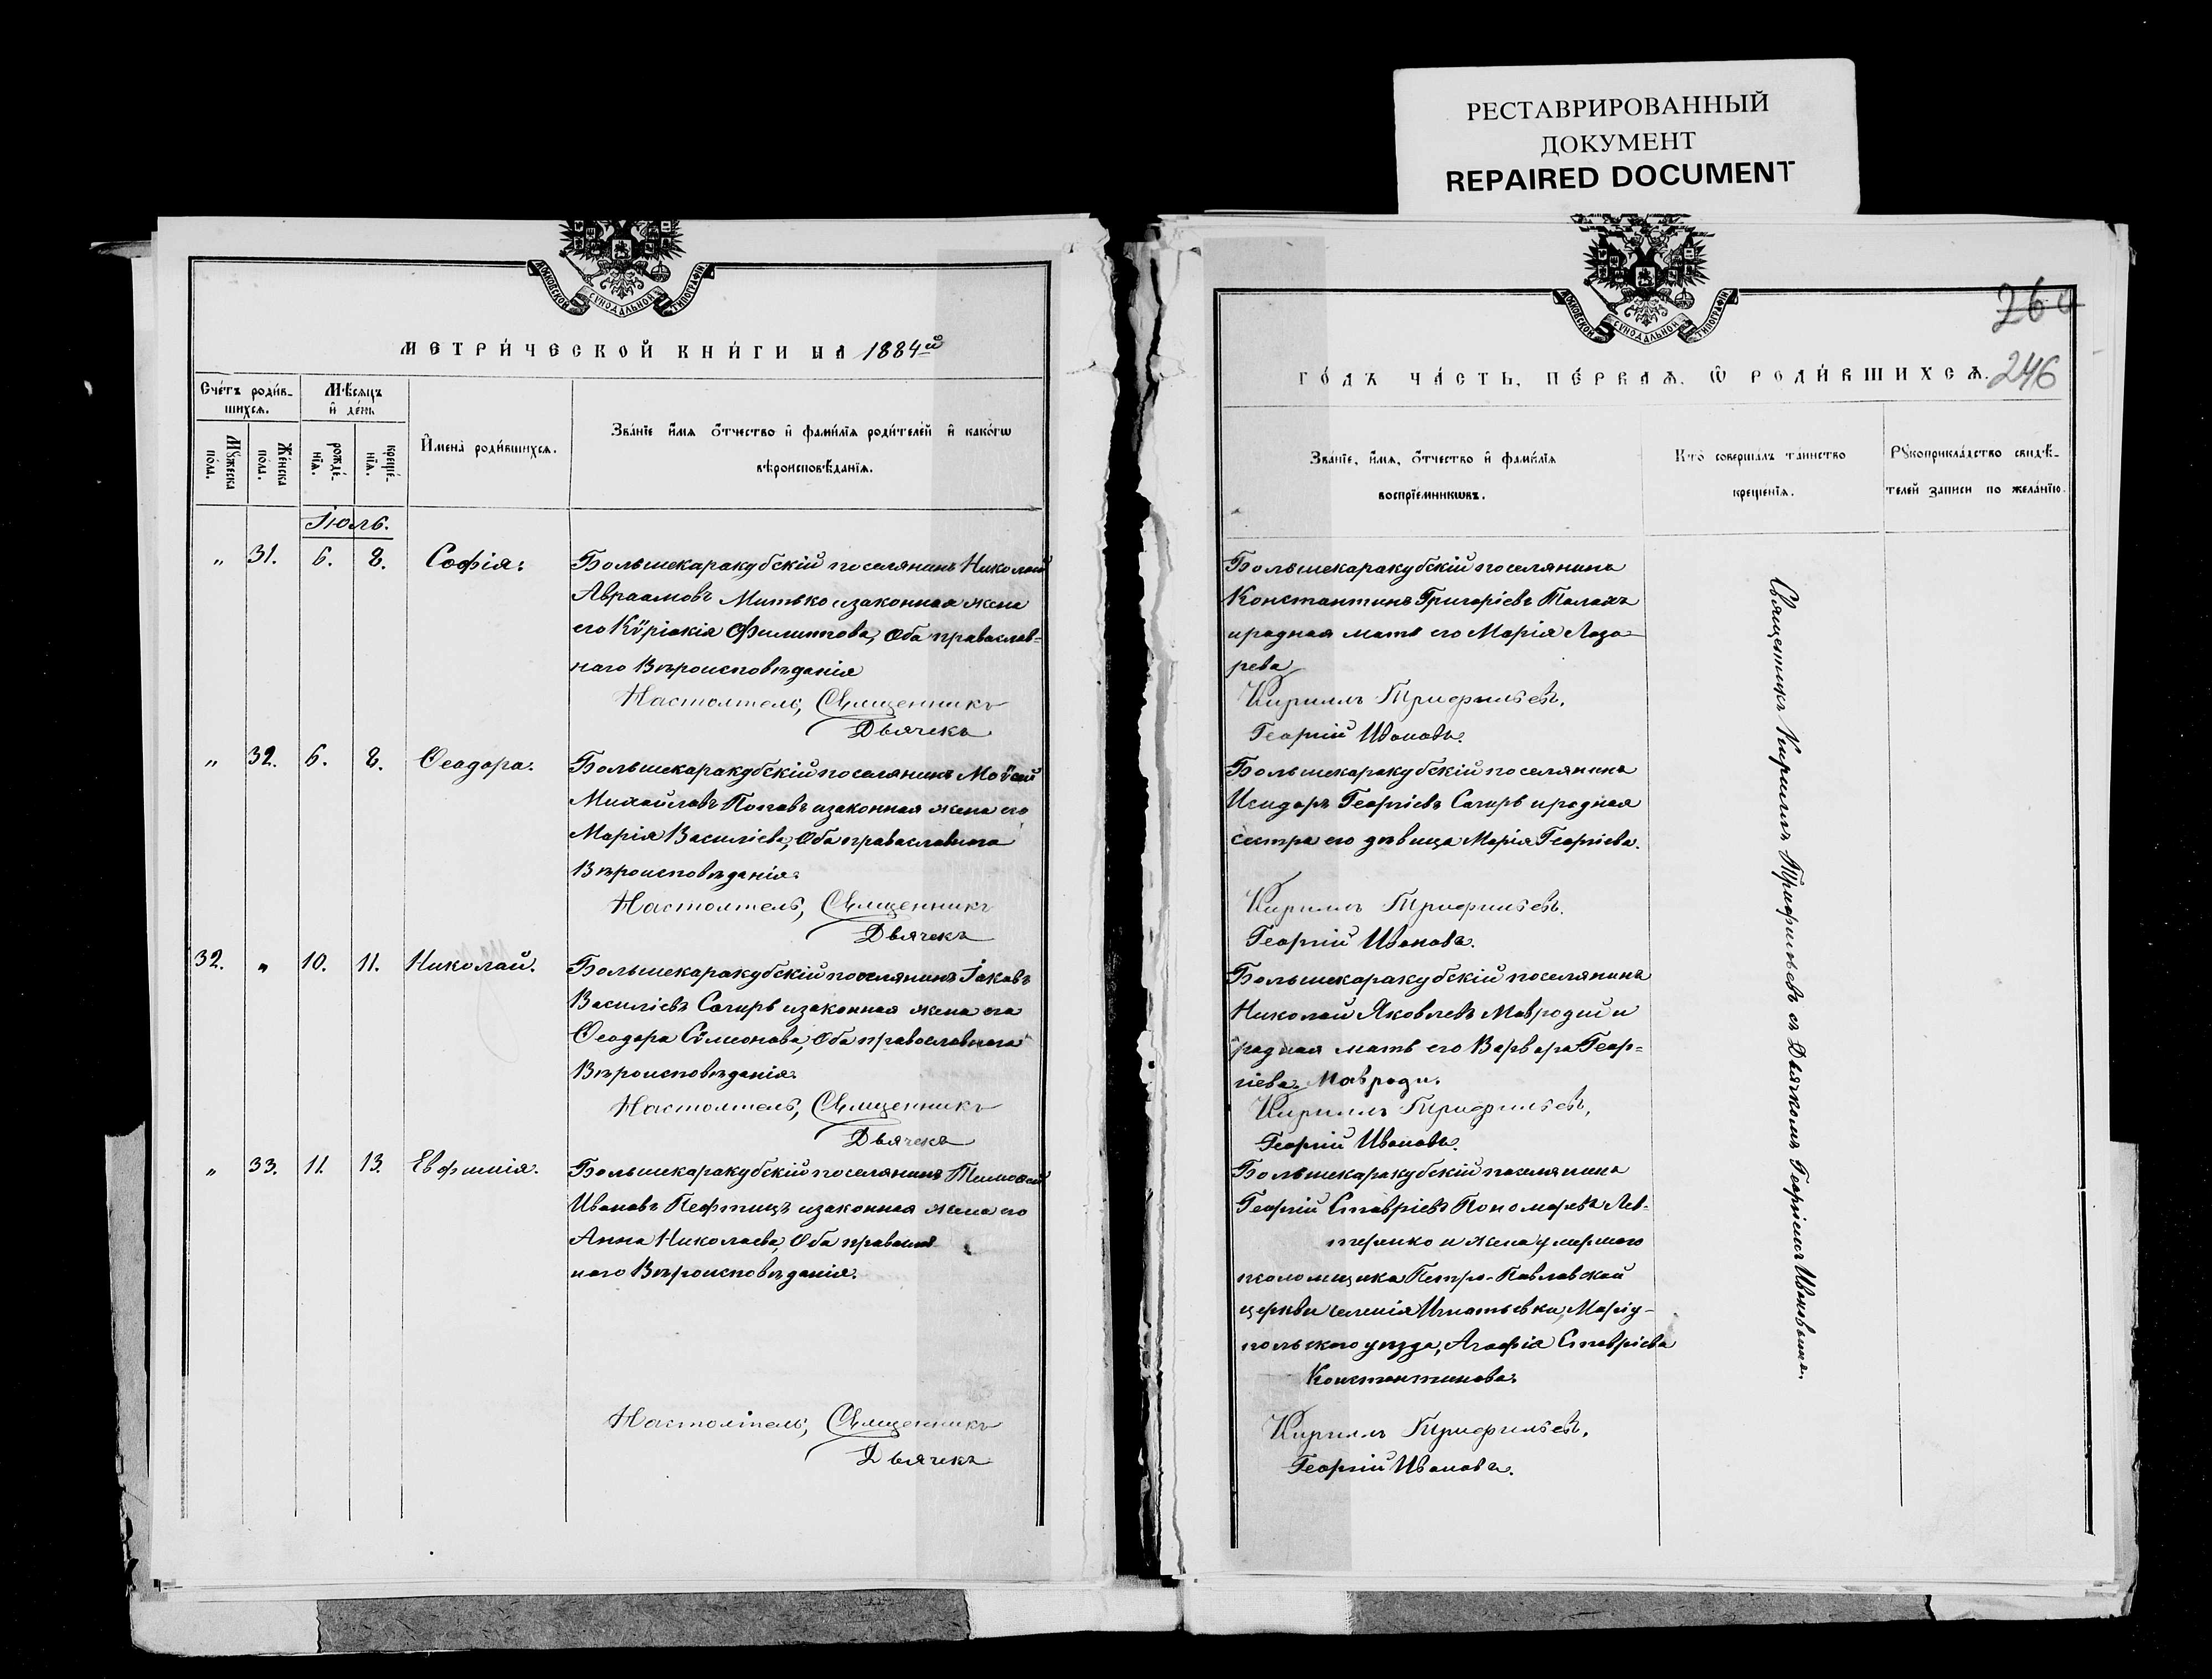 РЕСТАВРИРОВАННЫЙ
ДОКУМЕНТ
REPAIRED DOCUMENT
МОСКОВСКОЙ СѴНОДАЛЬНОЙ ТИПОГРАФІИ
МЕТРИ́ЧЕСКОЙ КНИ́ГИ НА 1884й
Сче́тъ роди́в-
шихсѧ.
Мѣ́сѧцъ
и҆ де́нь
Мꙋ́жеска
по́ла.
Же́нска
по́ла.
рожде́-
нїѧ.
креще́-
нїѧ.
И҆мена̀ роди́вшихсѧ.
Зва́нїе и҆́мѧ ѻ҆́тчество и҆ фами́лїѧ роди́телей и҆ како́гѡ
вѣроисповѣ́данїѧ.
Іюль.
„ 31. 6. 8. Софія.
Большекаракубскій поселянинъ Николай
Авраамовъ Митько изаконная жена
его Кѵріакія Филиппова, Оба православ-
наго Вѣроисповѣданія
Настоятель, Священникъ
Дьячекъ
„ 32. 6. 8. Ѳеодора.
Большекаракубскій поселянинъ Моѵсей
Михайловъ Поповъ изаконная жена его
Марія Василіева, Оба православнаго
Вѣроисповѣданія.
Настоятель, Священникъ
Дьячекъ
32. „ 10. 11. Николай.
Большекаракубскій поселянинъ Іаковъ
Василіевъ Сагирь изаконная жена его
Ѳеодора Сѵмеонова, Оба православнаго
Вѣроисповѣданія.
Настоятель, Священникъ
Дьячекъ
„ 33. 11. 13. Евфимія.
Большекаракубскій поселянинъ Тимоѳей
Ивановъ Пефтицъ изаконная жена его
Анна Николаева, Оба православ-
наго Вѣроисповѣданія.
Настоятель, Священникъ
Дьячекъ
МОСКОВСКОЙ СѴНОДАЛЬНОЙ ТИПОГРАФІИ
246
ГО́ДЪ ЧА́СТЬ, ПЕ́РВАѦ, Ѽ РОДИ́ВШИХСѦ.
Зва́нїе, и҆́мѧ, ѻ҆́тчество и҆ фами́лїѧ
воспрїе́мникѡвъ.
Кто̀ соверша́лъ та́инство
креще́нїѧ.
Рꙋкоприкла́дство свидѣ́-
телей записи по жела́нїю.
Большекаракубскій поселянинъ
Константинъ ГригоріевъТалахъ
иродная мать его Марія Лаза-
рева
Кириллъ Трифильевъ.
Георгій Ивановъ.
Большекаракубскій поселянинъ
Исидоръ Георгіевъ Сагирь иродная
сестра его дѣвица Марія Георгіева.
Кириллъ Трифильевъ.
Георгій Ивановъ.
Большекаракубскій поселянинъ
Николай Яковлевъ Мавродий и
родная мать его Варвара Геор-
гіева Мавроди.
Кириллъ Трифильевъ,
Георгій Ивановъ.
Большекаракубскій поселянинъ
Георгій Ставріевъ Пономаревъ Лев-
терико и жена умершаго
псаломщика Петро-Павловской
церкви селенія Игнатьевки, Маріу-
польскаго уѣзда, Агафія Ставріева
Константинова.
Кириллъ Трифильевъ,
Георгій Ивановъ.
Священникъ Кириллъ Трифильевъ съ Дьячкомъ Георгіемъ Ивановымъ.